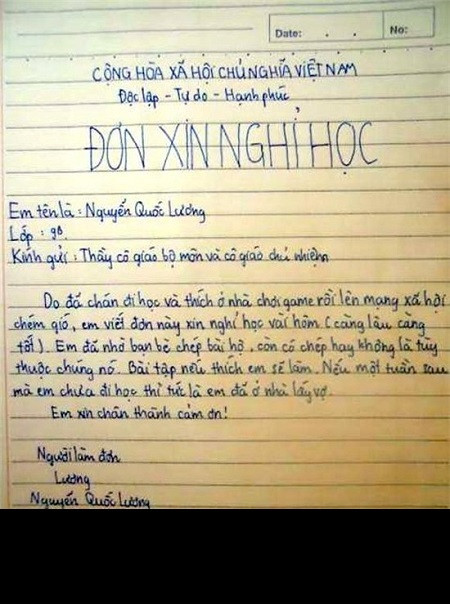 Date: . . No:
CỘNG HÒA XÃ HỘI CHỦ NGHĨA VIỆT NAM
Độc lập - Tự do - Hạnh phúc
ĐƠN XIN NGHỈ HỌC
Em tên là : Nguyễn Quốc Lương
Lớp : 9B
Kính gửi : Thầy cô giáo bộ môn và cô giáo chủ nhiệm
Do đã chán đi học và thích ở nhà chơi game rồi lên mạng xã hội
chém gió, em viết đơn này xin nghỉ học vài hôm (càng lâu càng
tốt). Em đã nhờ bạn bè chép bài hộ, còn có chép hay không là tùy
thuộc chúng nó. Bài tập nếu thích em sẽ làm. Nếu một tuần sau
mà em chưa đi học thì tức là em đã ở nhà lấy vợ.
Em xin chân thành cảm ơn!
Người làm đơn
Lương
Nguyễn Quốc Lương